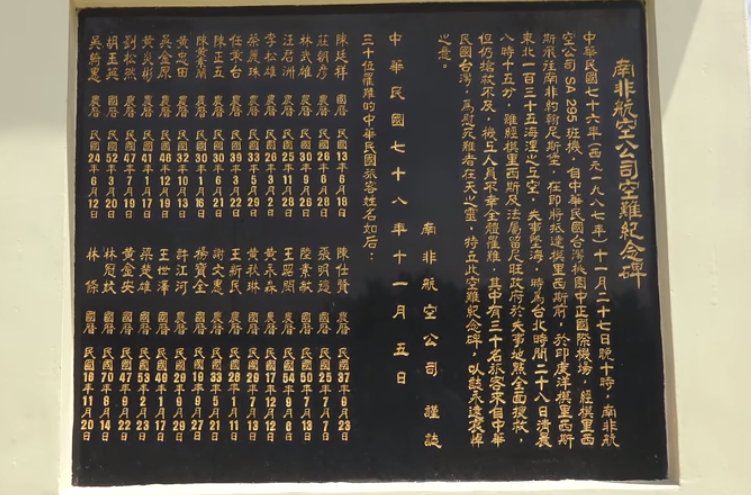 南非航空公司空難紀念碑
中華民國七十六年(西元一九八七年)十一月二十七日晚十時，南非航
空公司 SA 295 班機，自中華民國台灣桃園中正國際機場，經模里西
斯飛往南非約翰尼斯堡，在即將抵達模里西斯前，於印度洋模里西斯
東北一百三十五海浬之上空，失事墜海，時為台北時間二十八日清晨
八時十五分，雖經模里西斯及法屬留尼旺政府於失事地點全面搜救，
但仍搶救不及，機上人員不幸全體罹難，其中有三十名旅客來自中華
民國台灣，為慰死難者在天之靈，特立此空難紀念碑，以誌永遠哀悼
之意。
南非航空公司 謹誌
中華民國七十八年十一月五日
三十位罹難的中華民國旅客姓名如后：
陳廷祥 國曆 民國13年6月18日
莊朝彥 農曆 民國26年6月28日
林武雄 農曆 民國30年9月26日
汪石洲 農曆 民國25年11月28日
李松雄 農曆 民國26年3月2日
蔡麗珠 農曆 民國33年5月29日
任秉台 農曆 民國39年3月22日
陳正五 農曆 民國30年11月21日
陳黃素蘭 農曆 民國30年1月16日
黃忠田 農曆 民國32年10月13日
吳金原 農曆 民國46年12月19日
黃炎彬 農曆 民國41年1月17日
劉松然 農曆 民國47年7月19日
胡玉英 國曆 民國52年3月20日
吳錦惠 農曆 民國24年6月12日
陳仕賢 農曆 民國37年6月23日
張明遠 國曆 民國25年7月7日
陸素敏 國曆 民國50年7月13日
王昭閔 農曆 民國54年9月6日
黃永森 農曆 民國17年12月12日
黃秋琳 農曆 民國29年7月13日
王新民 農曆 民國28年1月11日
謝文惠 國曆 民國33年5月21日
楊寶全 國曆 民國16年9月27日
許江河 農曆 民國29年9月29日
王世澤 農曆 民國49年1月17日
梁楚雄 農曆 民國53年2月13日
黃金安 國曆 民國47年9月22日
林冠 國曆 民國70年8月14日
林 國曆 民國16年11月20日